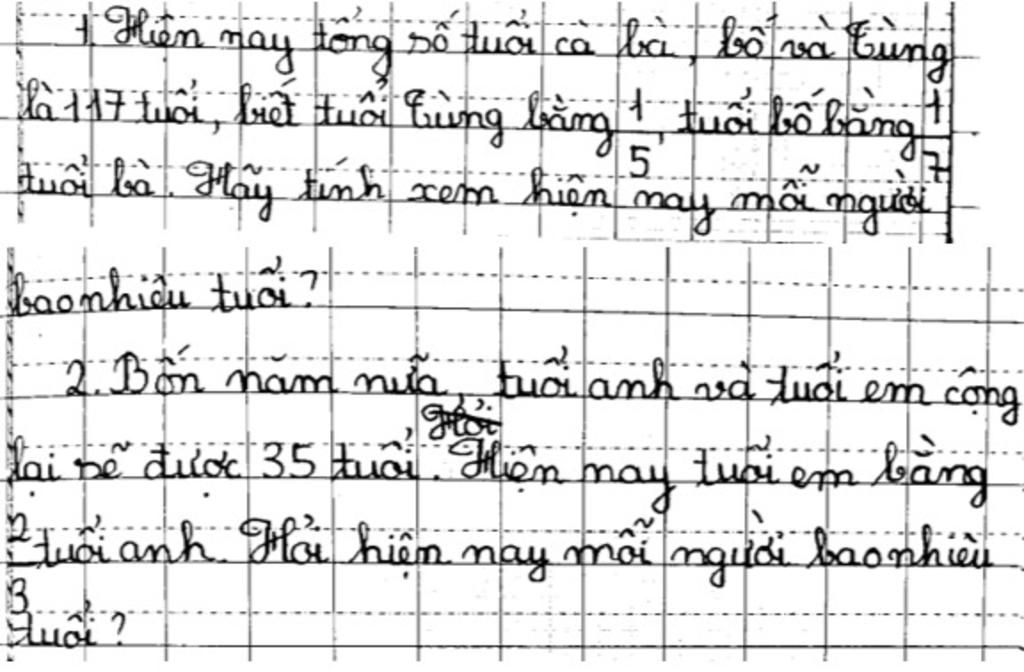 1 Hiện nay tổng số tuổi cả bà, bố và Tùng
là 117 tuổi, biết tuổi Tùng bằng 1/5, tuổi bố bằng 1/7
tuổi bà. Hãy tính xem hiện nay mỗi người
bao nhiêu tuổi?
2. Bốn năm nữa, tuổi anh và tuổi em cộng
lại sẽ được 35 tuổi. Hiện nay tuổi em bằng
2/3 tuổi anh. Hỏi hiện nay mỗi người bao nhiêu
tuổi?